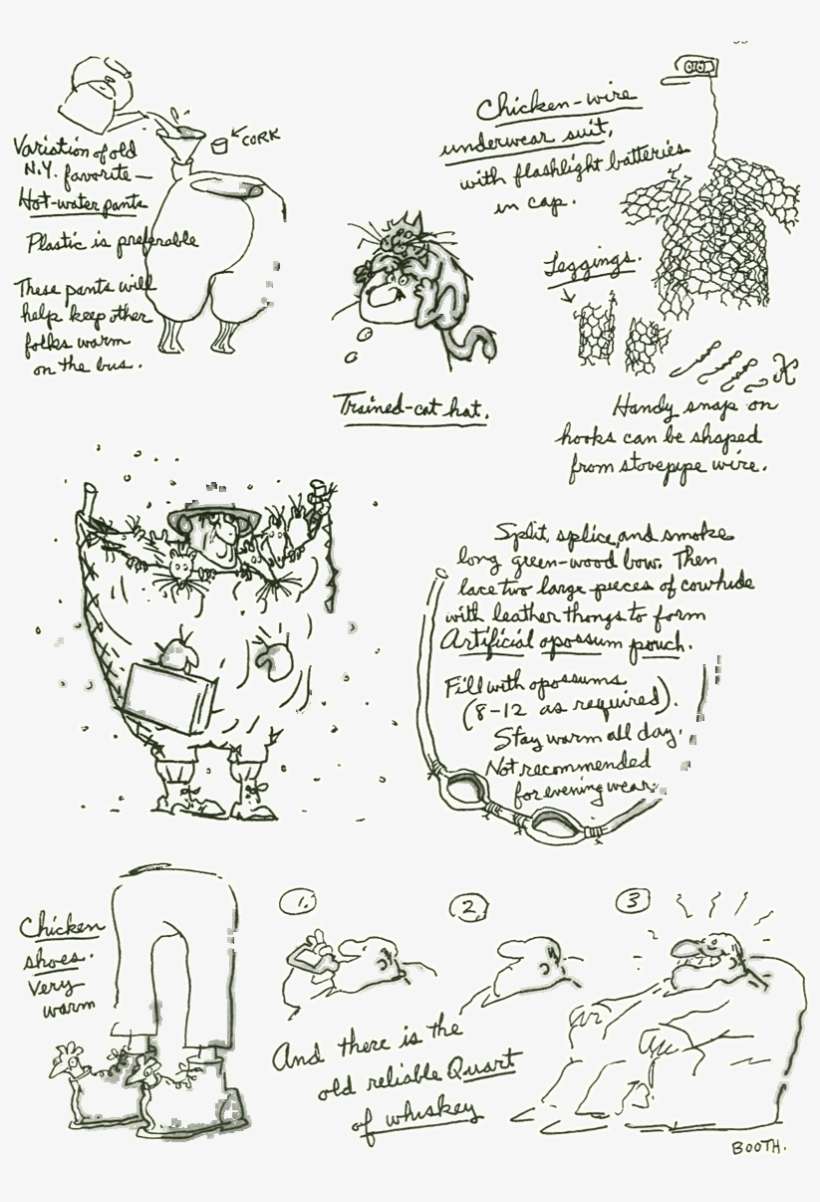 CORK
Variation of old
N.Y. favorite —
Hot-water pants
Plastic is preferable
These pants will
help keep other
folks warm
on the bus.
Chicken-wire
underwear suit,
with flashlight batteries
in cap.
Leggings.
Trained-cat hat.
Handy snap on
hooks can be shaped
from stovepipe wire.
Split, splice, and smoke
long green-wood bow. Then
lace two large pieces of cowhide
with leather thongs to form
Artificial opossum pouch.
Fill with opossums
(8-12 as required).
Stay warm all day.
Not recommended
for evening wear.
Chicken
shoes.
Very
warm
1.
2
3
And there is the
old reliable Quart
of whiskey
BOOTH.